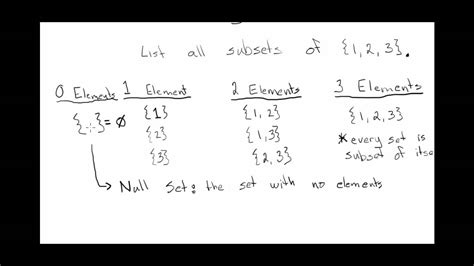 List all subsets of {1, 2, 3}.
0 Elements 1 Element 2 Elements 3 Elements
{ } = ∅ {1} {1, 2} {1, 2, 3}
{2} {1, 3} *every set is
{3} {2, 3} subset of itse
→ Null Set: the set with no elements